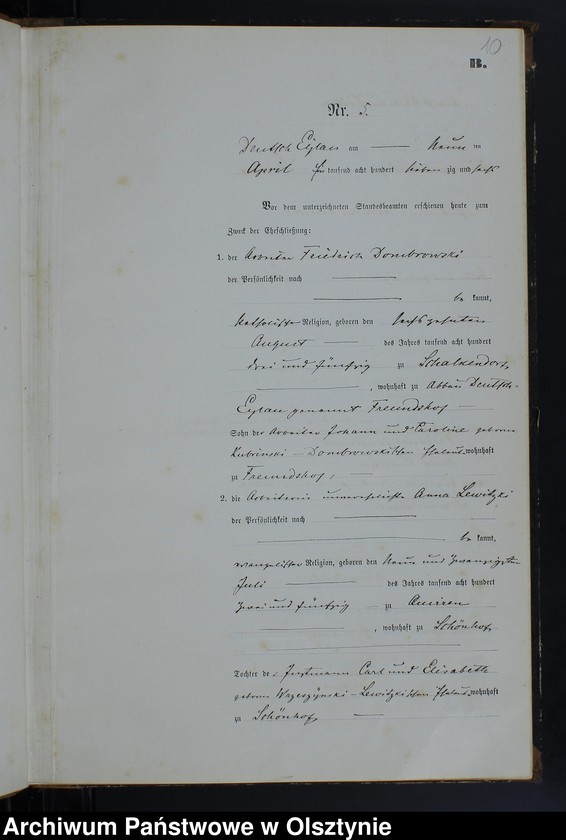 10
B.
Nr. 5.
Deutsch Eylau am — Neun ten
April Ein tausend acht hundert sieben zig und sechs
Vor dem unterzeichneten Standesbeamten erschienen heute zum
Zweck der Eheschließung:
1. der Arbeiter Friedrich Dombrowski
der Persönlichkeit nach —
— be kannt,
katholischer Religion, geboren den sechszehnten
August — des Jahres tausend acht hundert
drei und fünfzig zu Schalkendorf,
—, wohnhaft zu Abbau Deutsch-
Eylau genannt Freundshof —
Sohn der Arbeiter Johann und Caroline geborne
— Dombrowskischen Eheleute wohnhaft
zu Freundshof, —
2. die Arbeiterin unverehelichte Anna Lewitzki
der Persönlichkeit nach —
— be kannt,
evangelischer Religion, geboren den Neun und zwanzigsten
Juli — des Jahres tausend acht hundert
zwei und fünfzig — zu
—, wohnhaft zu Schönhof,
—
Tochter der Instmann Carl und Elisabeth
geborne — Lewitzkischen Eheleute wohnhaft
zu Schönhof, —
Archiwum Państwowe w Olsztynie